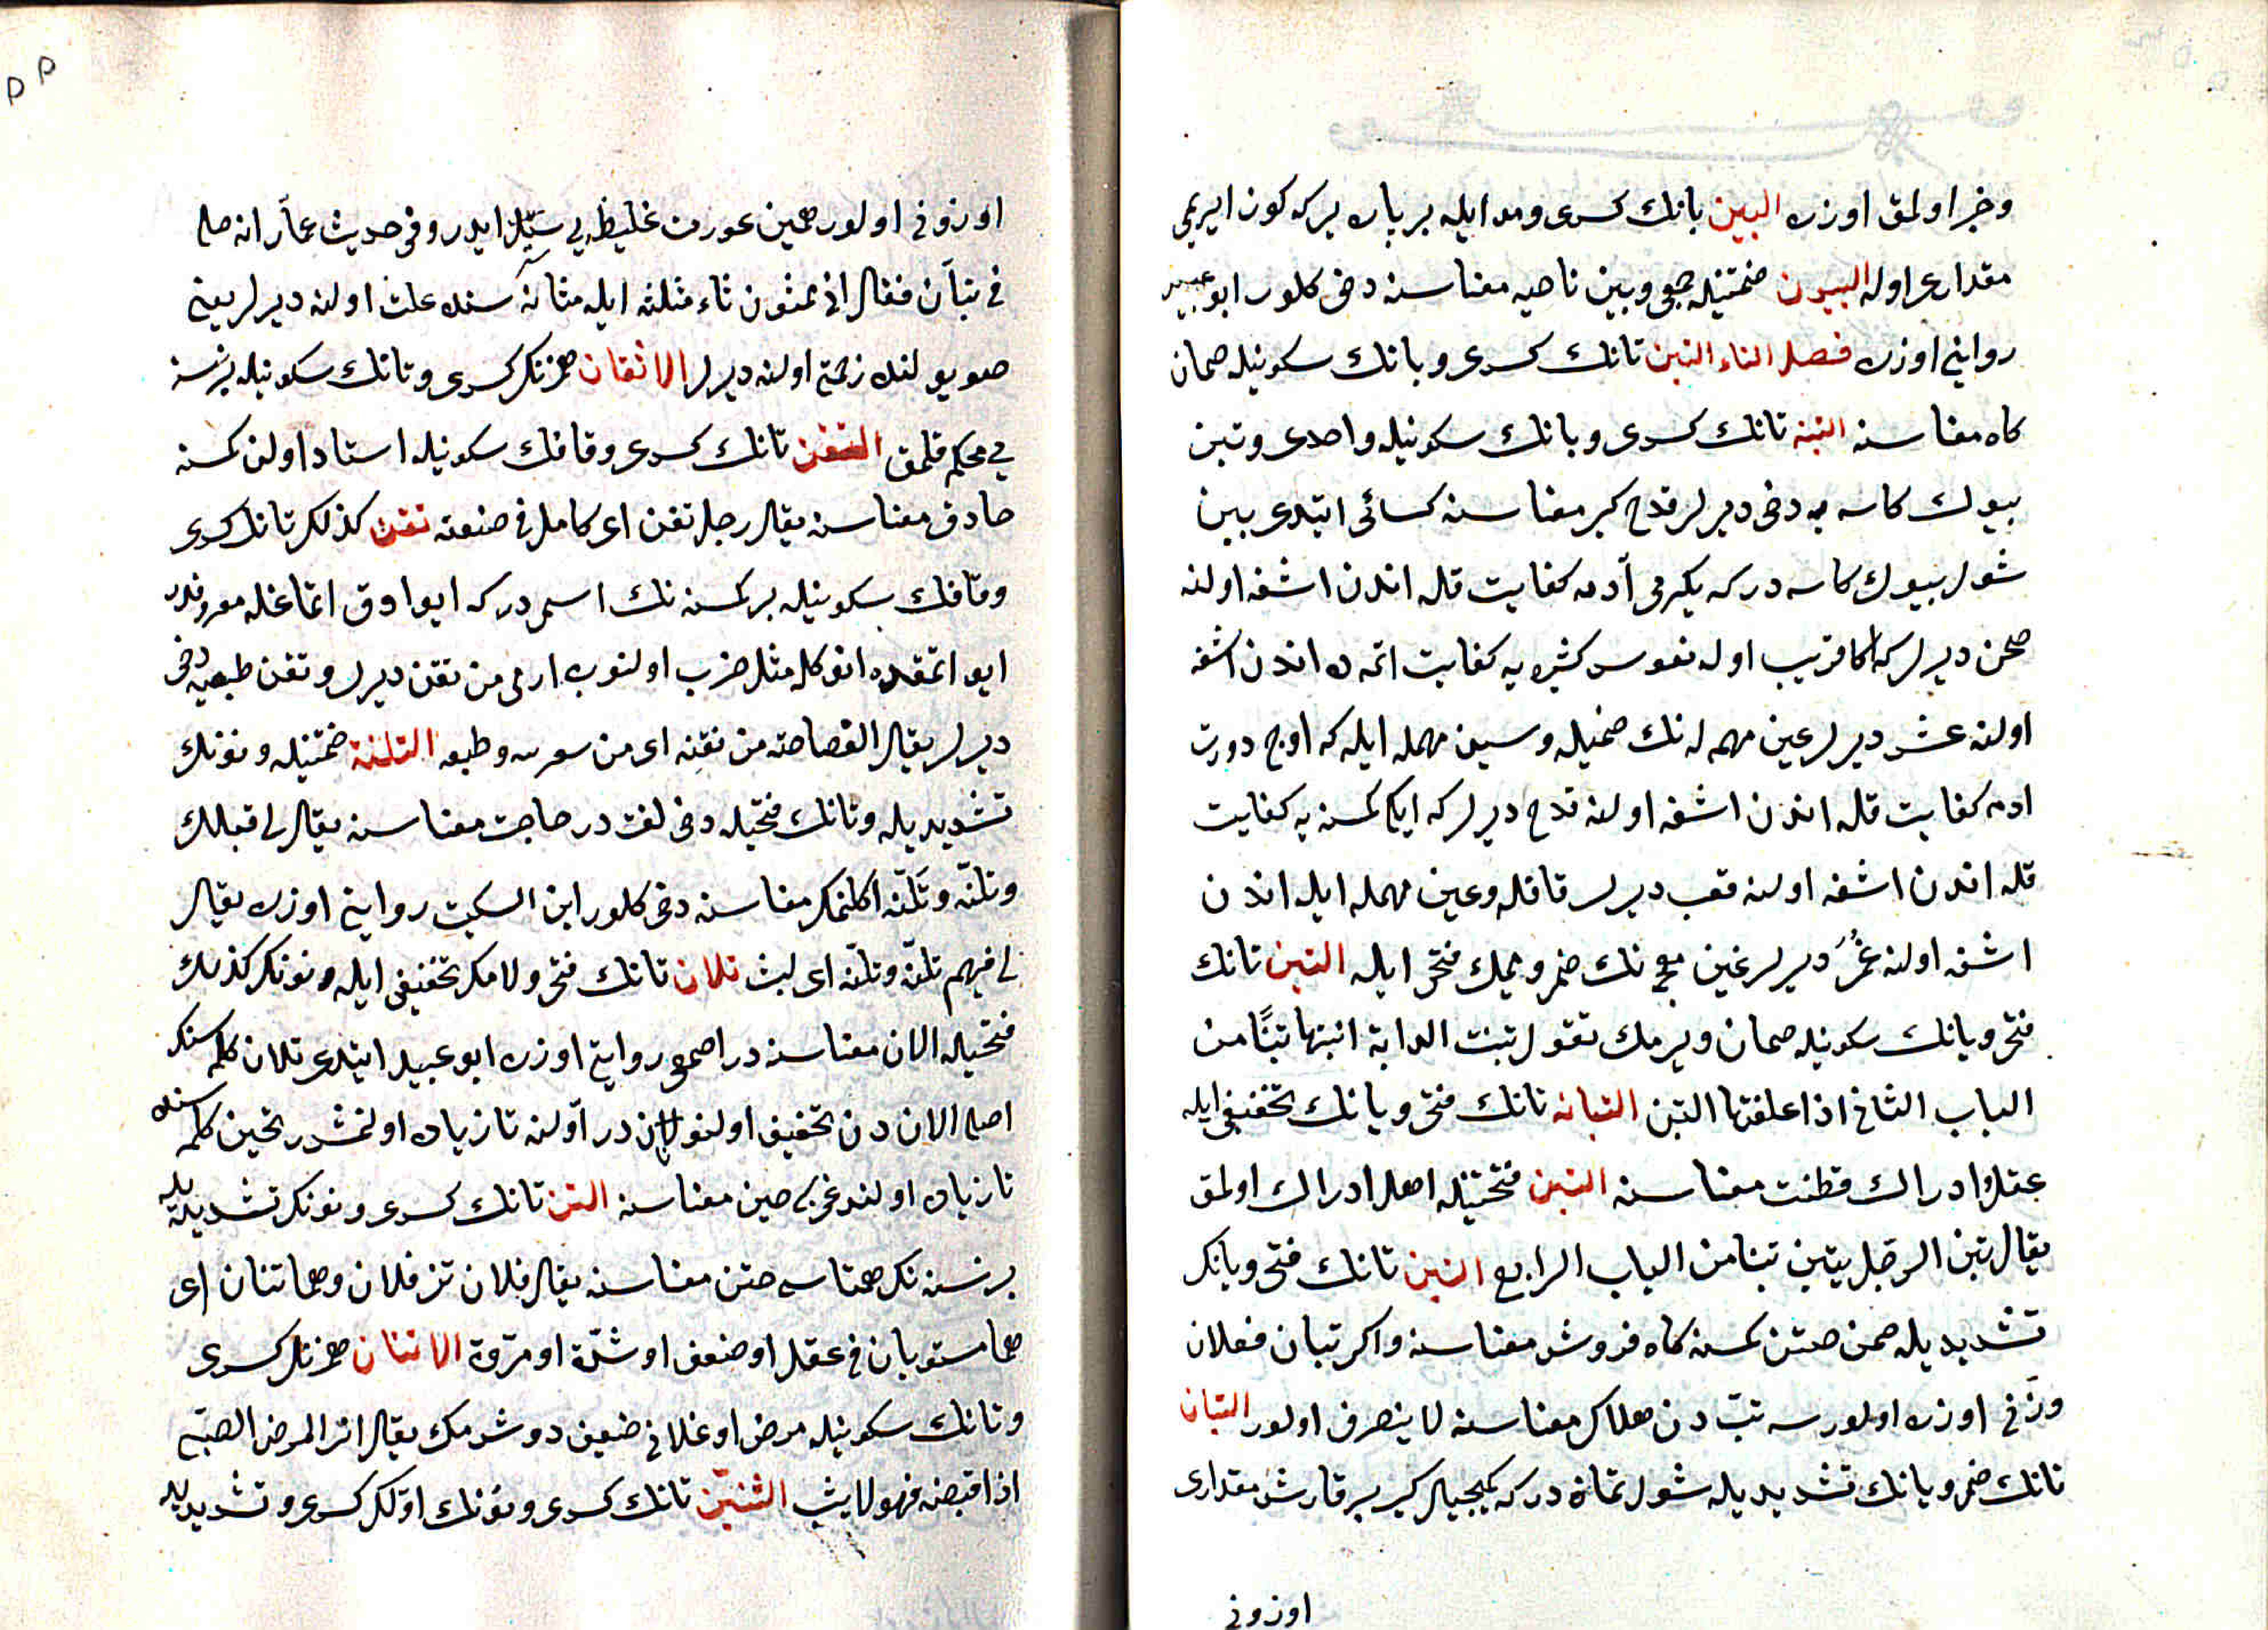 وخبر اولمق اوزره البين بانك كسرى ومد ايله بر پاره يركه كوز ايريمى
مقدارى اوله البيون ضمتينله جمعى وبين ناحيه معناسنه دخى كلور ابو عبيد
روايتى اوزره فصل التاء التبن تانك كسرى وبانك سكونيله صمان
كاه معناسنه التبنه تانك كسرى وبانك سكونيله واحدى وتبن
بيوك كاسه يه دخى ديرلر قدح كبير معناسنه كسائى ايتدى تبن
شول بيوك كاسه دركه يكرمى آدمه كفايت قله اندن اشغه اولنه
صحن ديرلر كه اكا قريب اوله نفوس كثيره يه كفايت اتمه ده اندن اشغه
اولنه عس ديرلر عين مهمله نك ضميله وسين مهمله ايله كه اوج دورت
ادمه كفايت قله اندن اشغه اولنه قدح ديرلر كه ايكى كمسنه يه كفايت
قله اندن اشغه اولنه قعب ديرلر قافله وعين مهمله ايله اندن
اشغه اولنه غمر ديرلر غين معجمه نك ضمى وميمك فتحى ايله التبن تانك
فتحى وبانك سكونيله صمان ويرمك تقول تبنت الدابة اتبنها تبنًا من
الباب الثانى اذا علفتها التبن التبانه تانك فتحى وبانك تخفيفى ايله
عقل وادراك فطنت معناسنه التبن فتحتينله اهل ادراك اولمق
يقال تبن الرجل يتبن تبنا من الباب الرابع التبن تانك فتحى وبانك
تشديديله صمن صتن كمسنه كاه فروش معناسنه واكر تبان فعلان
وزنى اوزره اولورسه تب دن هلاك معناسنه لا ينصرف اولور التبان
تانك ضمى وبانك تشديديله شول تمان دركه كميجيلر كير بر قارش مقدارى
اوزونى
اوزونى اولور همين عورت غليظه يى ستر ايدر وفى حديث عمار انه صلى
فى تبان فقال انى ممثون ثاء مثلثه ايله مثانه سنده علت اولنه ديرلر يعنى
صو يولنده زحمتى اولنه ديرلر الاتقان همزنك كسرى وتانك سكونيله بر نسنه
يى محكم قلمق التقن تانك كسرى وقافك سكونيله استاد اولن كمسنه
حاذق معناسنه يقال رجل تقن اى كامل فى صنعته تقن كذلك تانك كسرى
وقافك سكونيله بر كمسنه نك اسمى دركه ايو اوق اتماغله معروفدر
ايو اتمقده انوكله مثل ضرب اولنوب ارمى من تقن ديرلر وتقن طبعه دخى
ديرلر يقال الفصاحة من تقنه اى من سوسه وطبعه التلنة ضمتينله ونونك
تشديديله وتانك فتحيله دخى لغت در حاجت معناسنه يقال لى قبلك
وتلنه وتلنه اكلنمك معناسنه دخى كلور ابن السكيت روايتى اوزره يقال
لى فيهم تلنه وتلنه اى لبث تلان تانك فتحى ولامك تخفيفى ايله ونونك كذلك
فتحيله الان معناسنه در اصمعى روايتى اوزره ابو عبيد ايتدى تلان كلمه سنك
اصلى الان دن تخفيف اولنو لان در اولنه تا زياده اولنمشدر تحين كلمه سنده
تا زياده اولندوغى كبى حين معناسنه التن تانك كسرى ونونك تشديديله
بر نسنه نك همتاسى حتن معناسنه يقال فلان تن فلان وهما تنان اى
هما مستويان فى عقل او ضعف او شدة او مروة الاتنان همزنك كسرى
وتانك سكونيله مرض اوغلانى ضعيف دوشرمك يقال اتن المرض الصبى
اذا اقبضه فهو لا يشب التنين تانك كسرى ونونك اولكى كسرى وتشديديله